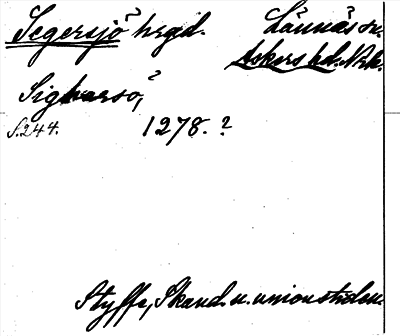 Segersjö? hrgd. Lännäs sn.
Askers hd. Nrk.
Sigharsö,?
S. 244. 1278. ?
Styffe, Skand. u. unionstiden.